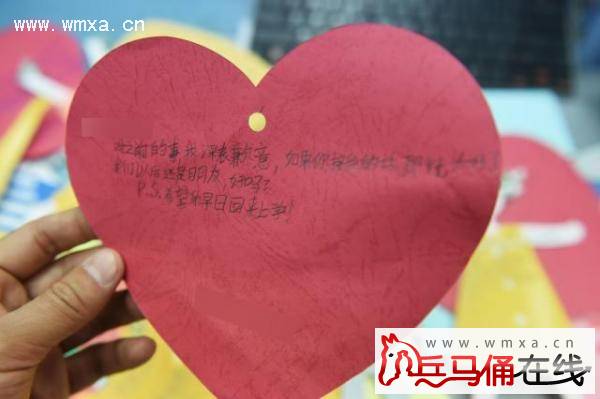 www.wmxa.cn
之前的事我深表歉意，如果你接受的话，那就太好了
们以后还是朋友，好吗？
P.S.希望你早日回来上学！
www.wmxa.cn
兵马俑在线